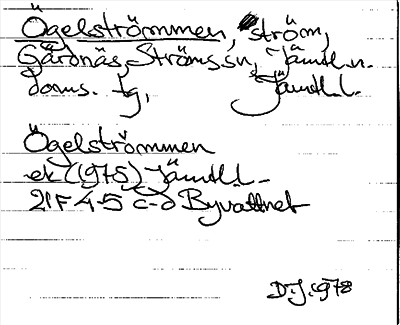 Ögelströmmen, ström,
Gärdnäs, Ströms sn, Jämtl. n.
doms. tg, Jämtl. l.
Ögelströmmen
ek (1978) Jämtl. l.
21F 4-5 c-d Byvattnet
D.J. 1978